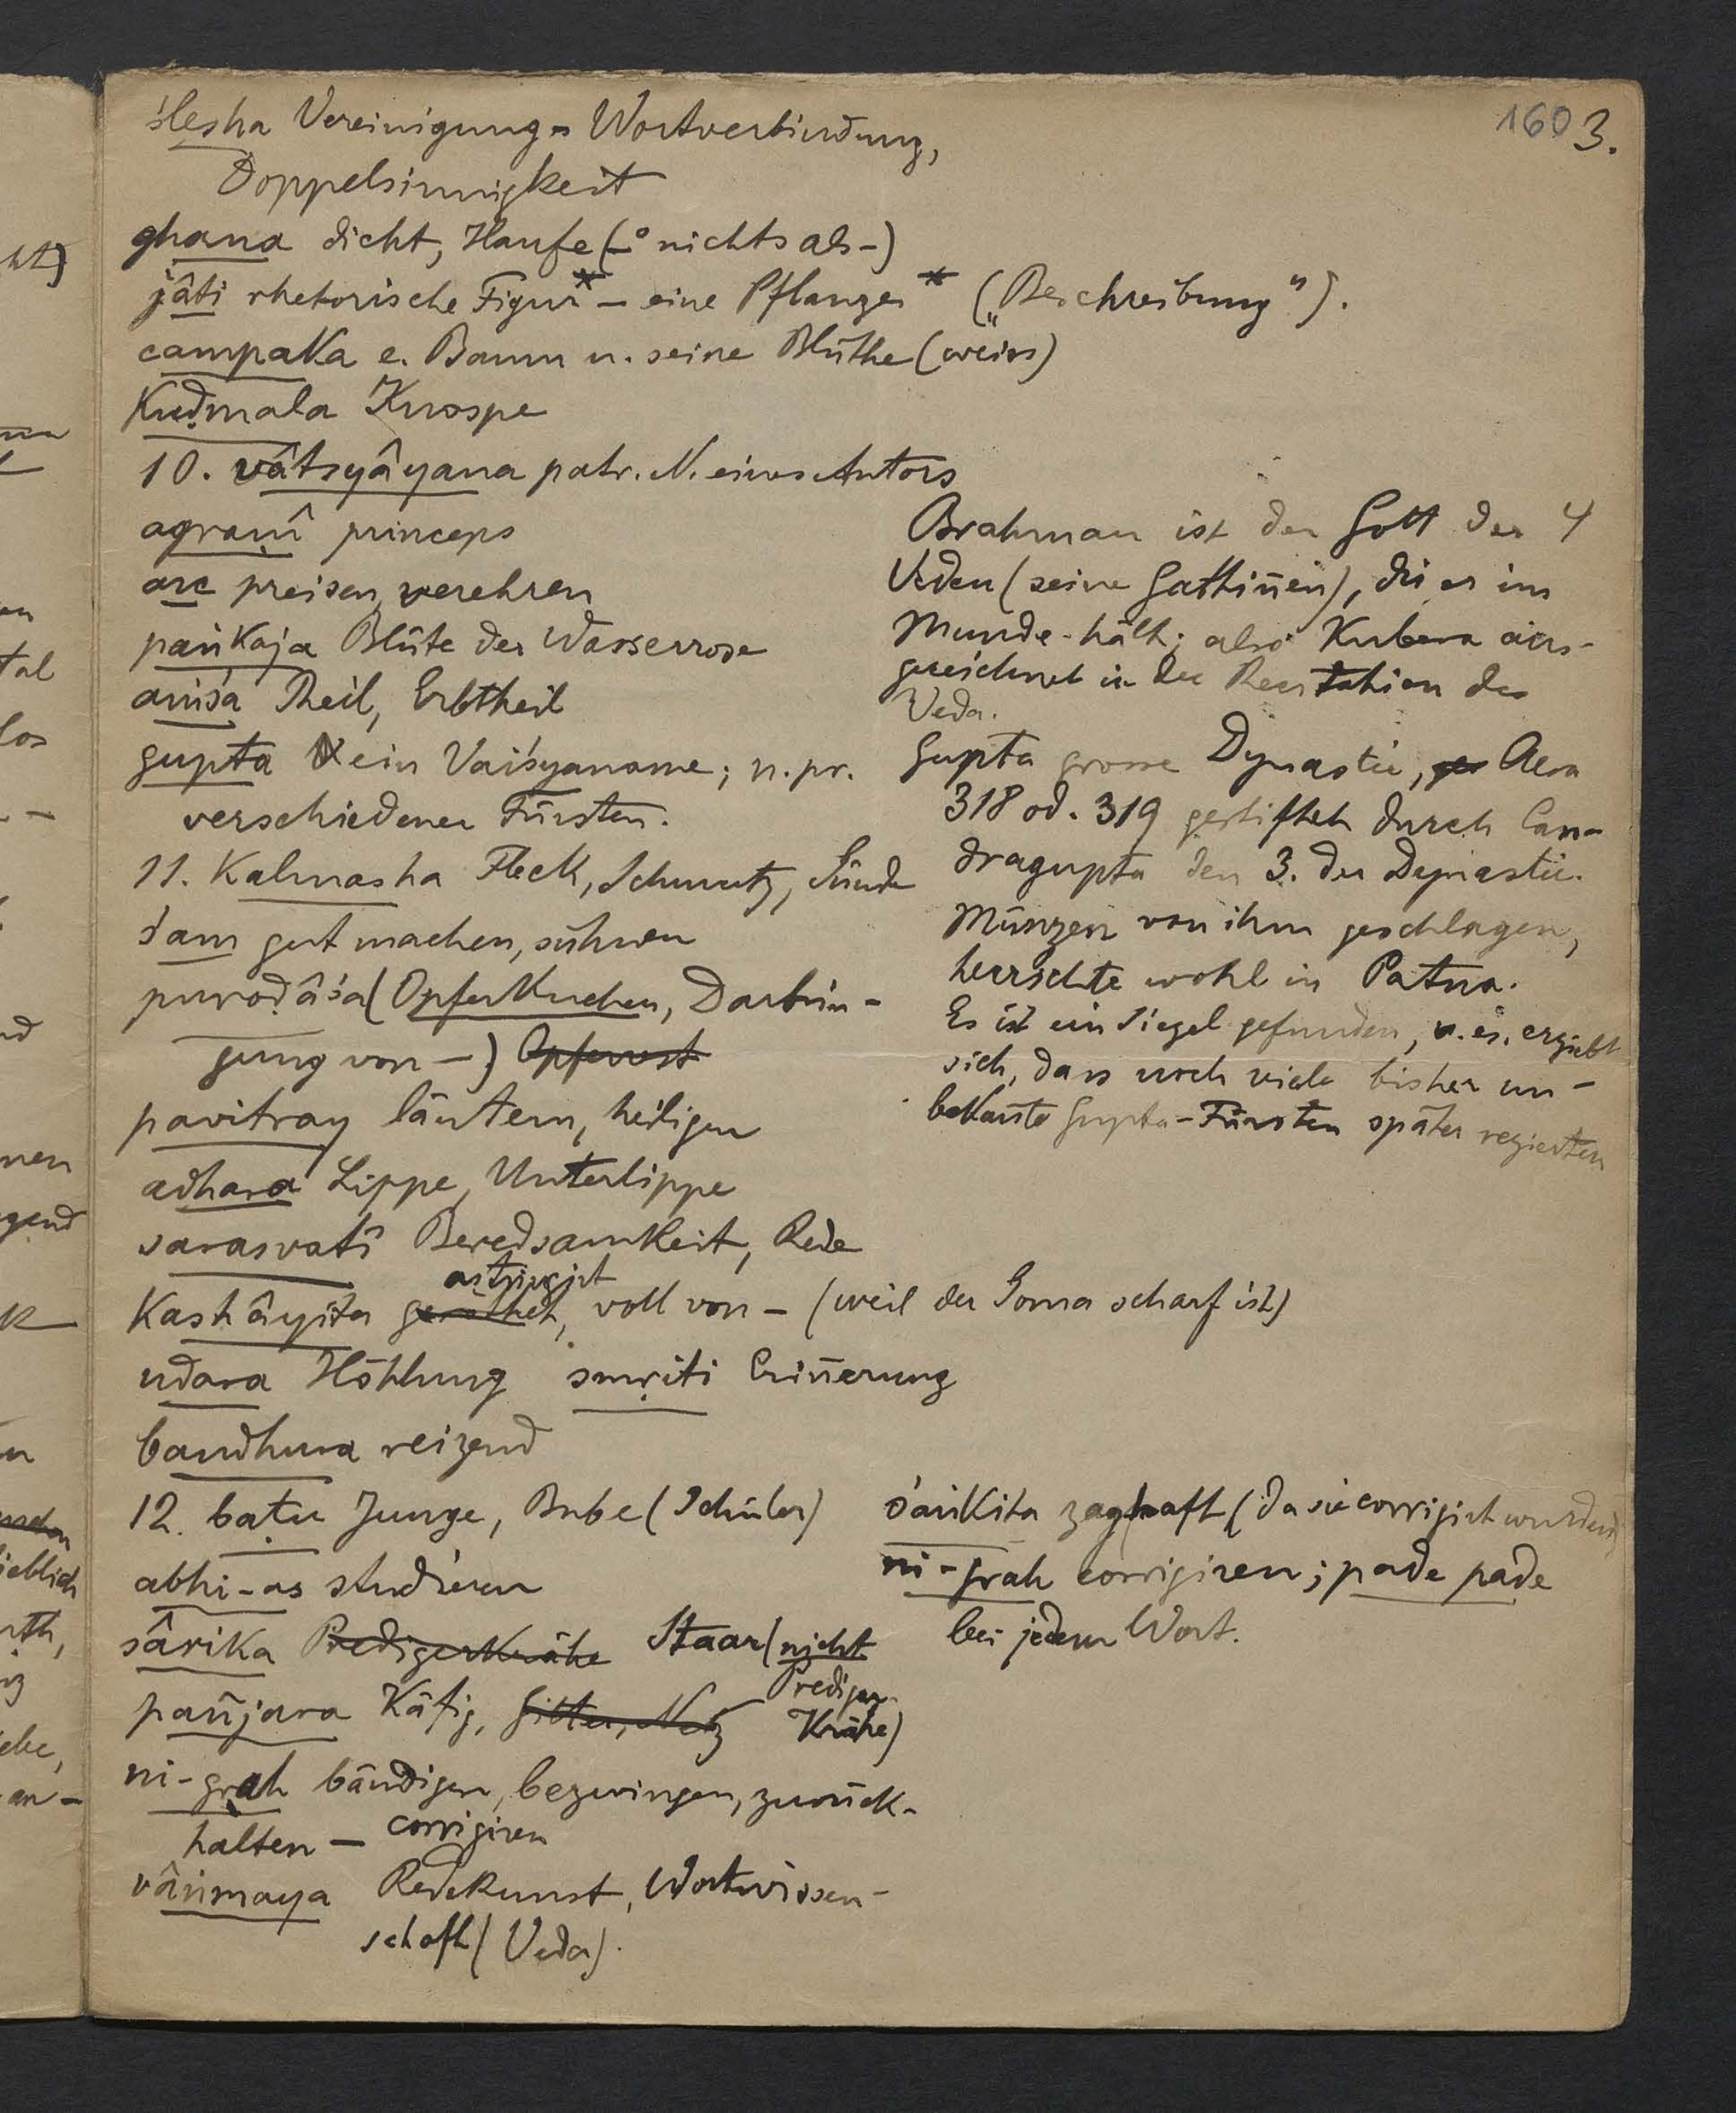 160 3.
ślesha Vereinigung - Wortverbindung,
Doppelsinnigkeit
ghana dicht, Haufe (-° nichts als -)
jâti rhetorische Figur* - eine Pflanze * („Beschreibung").
campaka e. Baum u. seine Blüthe (weiss)
kuḍmala Knospe
10. vâtsyâyana patr. N. eines Autors
agraṇî princeps
arc preisen, verehren
paṅkaja Blüte der Wasserrose
aṁśa Theil, Erbtheil
gupta ein Vaiśyaname; n. pr.
verschiedener Fürsten.
11. kalmasha Fleck, Schmutz, Sünde
śam gut machen, sühnen
puroḍâśa (Opferkuchen, Darbrin-
gung von -) Opferrest
pavitray läutern, heiligen
adhara Lippe, Unterlippe
sarasvatî Beredsamkeit, Rede
astringirt
kashâyita geröthet, voll von - (weil der Soma scharf ist)
udara Höhlung smṛiti Erin̄erung
bandhura reizend
12. baṭu Junge, Bube (Schüler)
abhi-as studieren
sârika Predigerkrähe Staar (nicht
Prediger-
pañjara Käfig, Gitter, Netz Krähe)
ni-grah bändigen, bezwingen, zurück-
halten - corrigiren
vâṅmaya Redekunst, Wortwissen-
schaft (Veda).
Brahman ist der Gott der 4
Veden (seine Gattin̄en), die er im
Munde hält; also Kubera aus-
gezeichnet in der Recitation des
Veda.
Gupta grosse Dynastie, Aera
318 od. 319 gestiftet durch Can-
dragupta den 3. der Dynastie.
Münzen von ihm geschlagen,
herrschte wohl in Patna.
Es ist ein Siegel gefunden, u. es ergiebt
sich, dass noch viele bisher un-
bekan̄te Gupta-Fürsten später regierten
śaṅkita zaghaft (da sie corrigirt wurden)
ni-grah corrigiren; pade pade
bei jedem Wort.